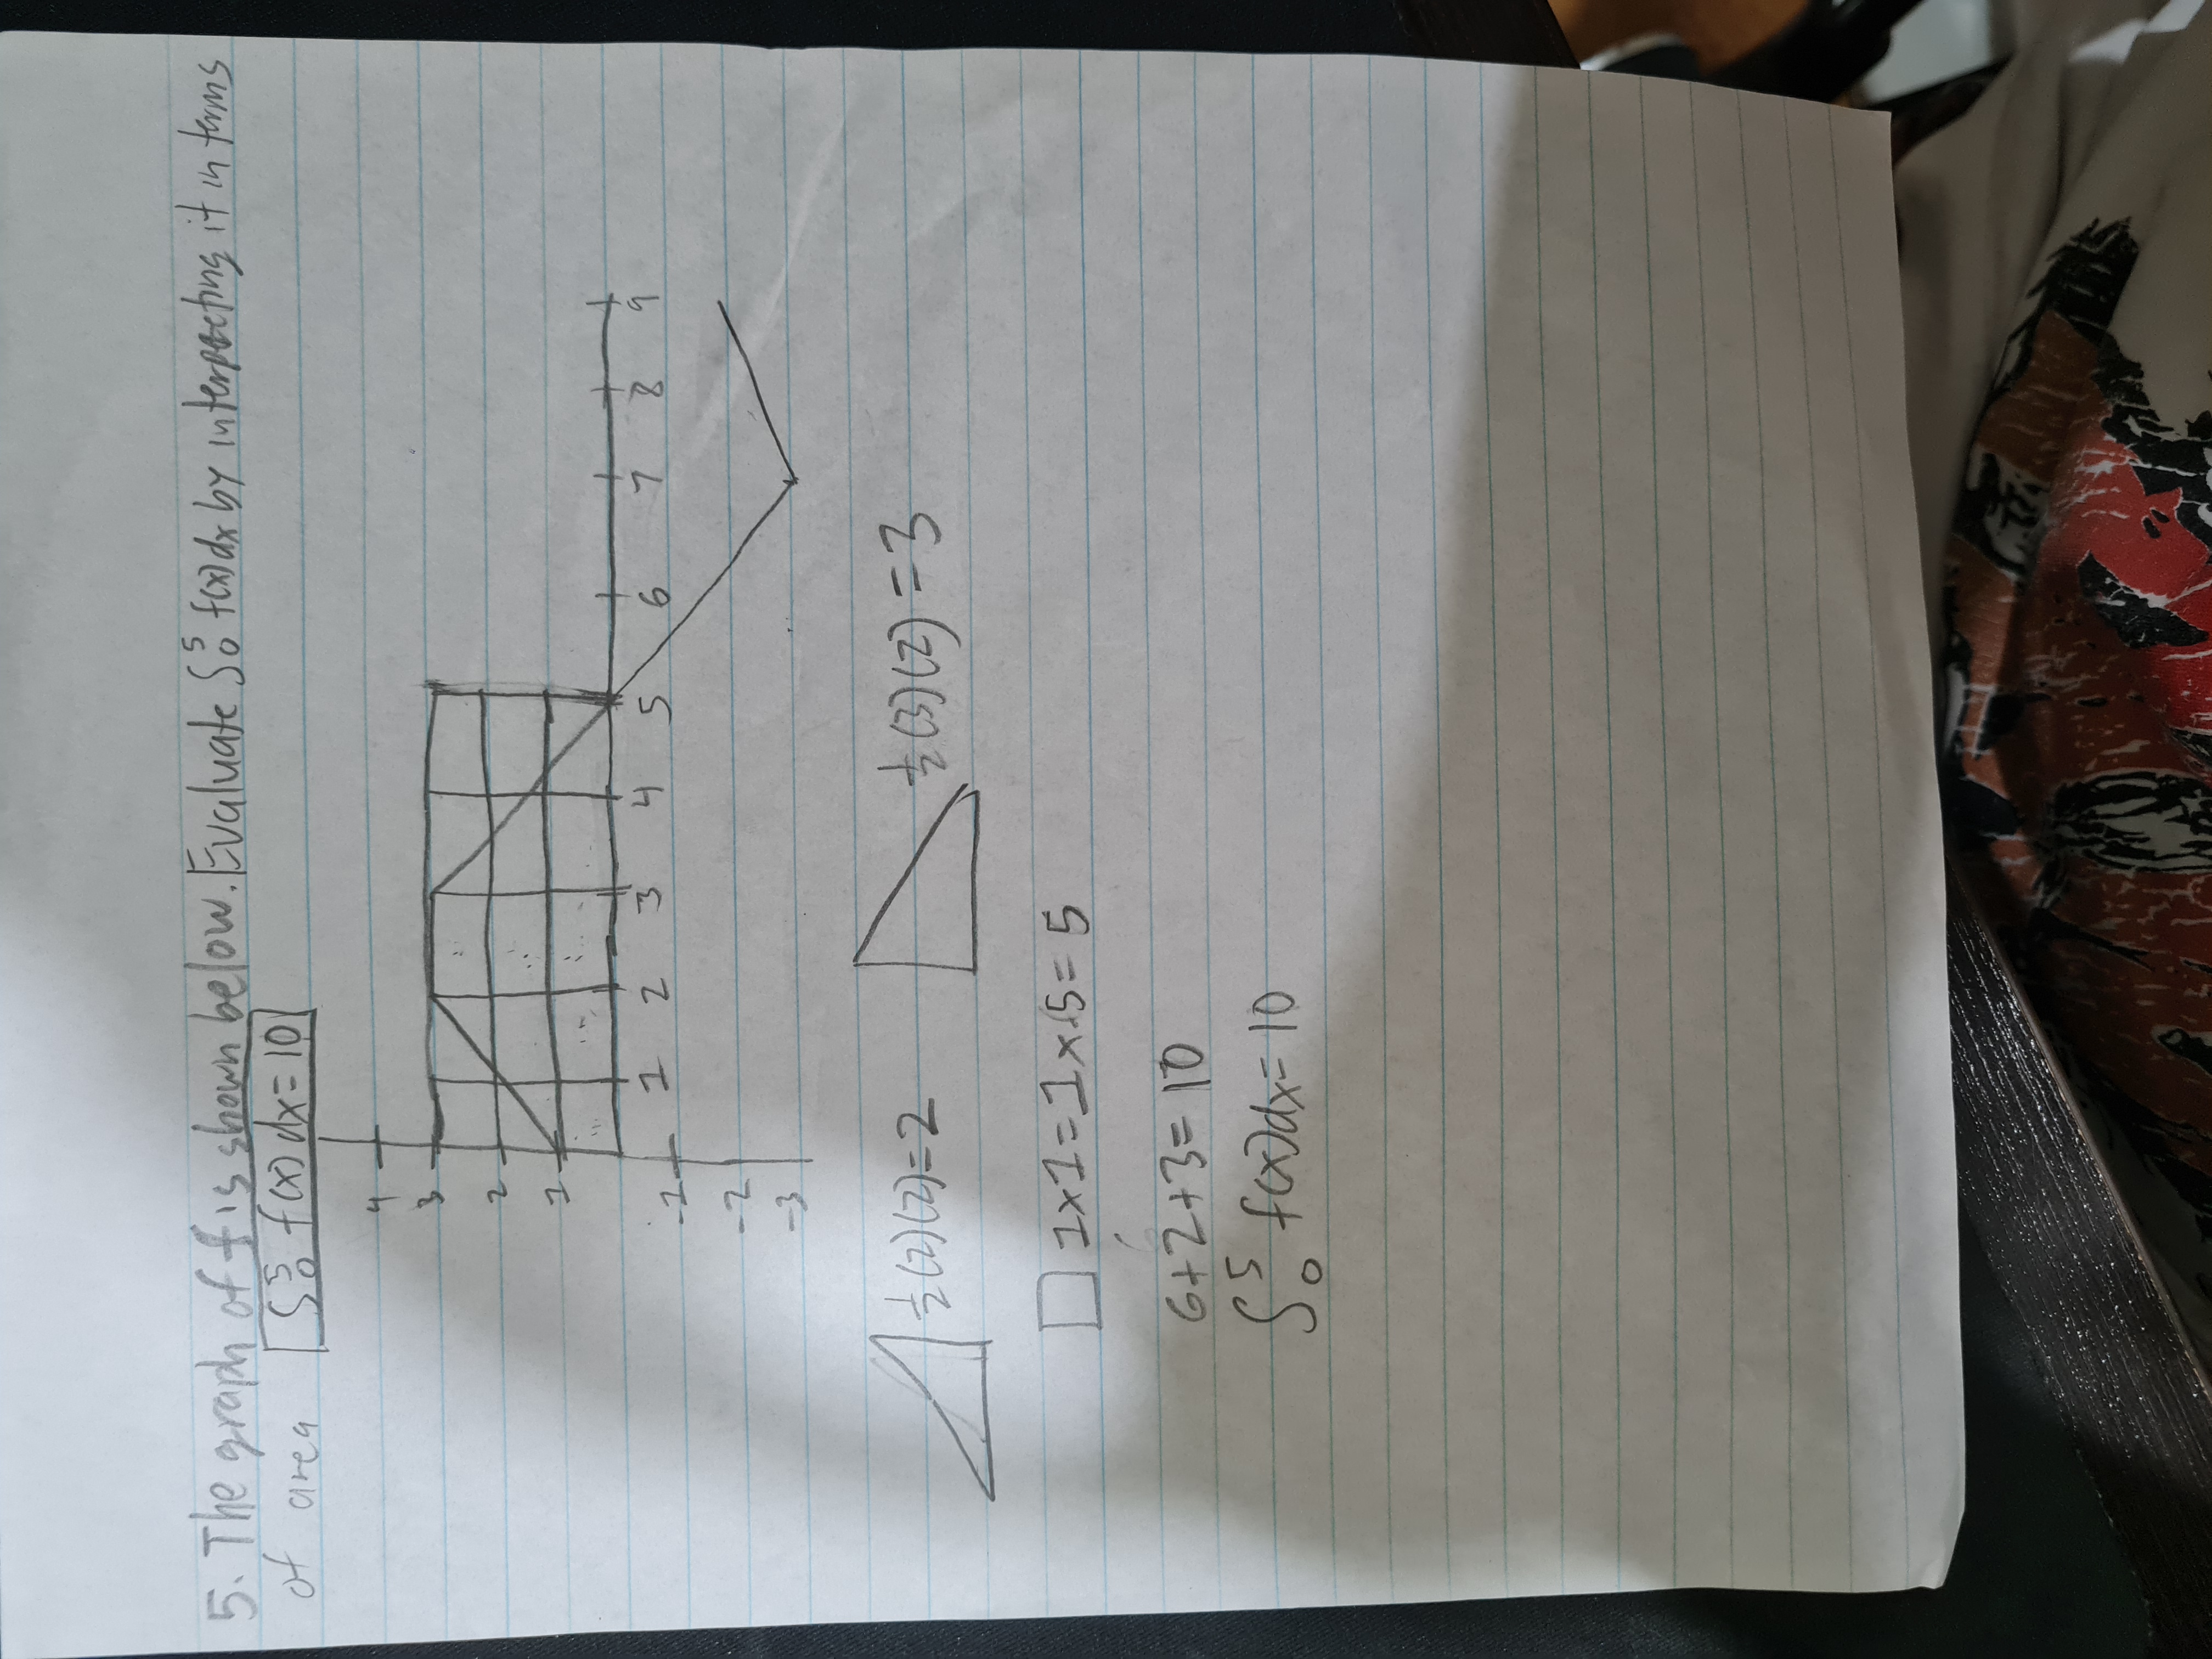 5. The graph of f is shown below. Evaluate ∫₀⁵ f(x)dx by interpecting it in terms
of area ∫₀⁵ f(x) dx = 10
4
3
2
1
1 2 3 4 5 6 7 8 9
-1
-2
-3
½(2)(2)=2 ½(3)(2)=3
1x1=1x5=5
6+2+3=10
∫₀⁵ f(x)dx=10